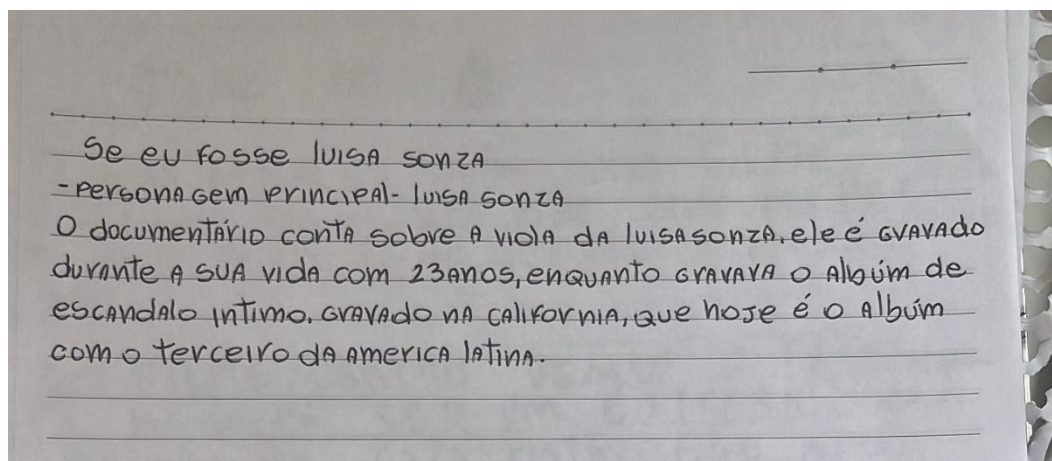 Se eu fosse luisa sonza
-Personagem principal- luisa sonza
O documentário conta sobre a vida da luisa sonza, ele é gravado
durante a sua vida com 23 anos, enquanto gravava o albúm de
escandalo intimo. gravado na california, que hoje é o albúm
com o terceiro da america latina.